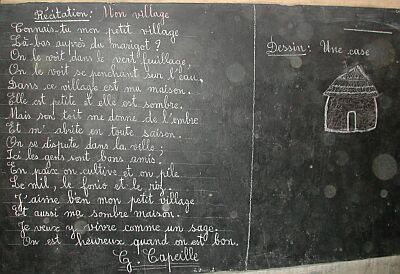 Récitation: Mon village
Connais-tu mon petit village
Là-bas auprès du marigot?
On le voit dans le vert feuillage,
On le voit se penchant sur l'eau,
Dans ce village est ma maison.
Elle est petite et elle est sombre.
Mais son toit me donne de l'ombre
Et m'abrite en toute saison.
On se dispute dans la ville;
Ici les gens sont bons amis.
En paix on cultive et on pile
Le mil, le fonio et le riz.
J'aime bien mon petit village
Et aussi ma sombre maison.
Je veux y vivre comme un sage.
On est heureux quand on est bon.
Capelle
Dessin: Une case